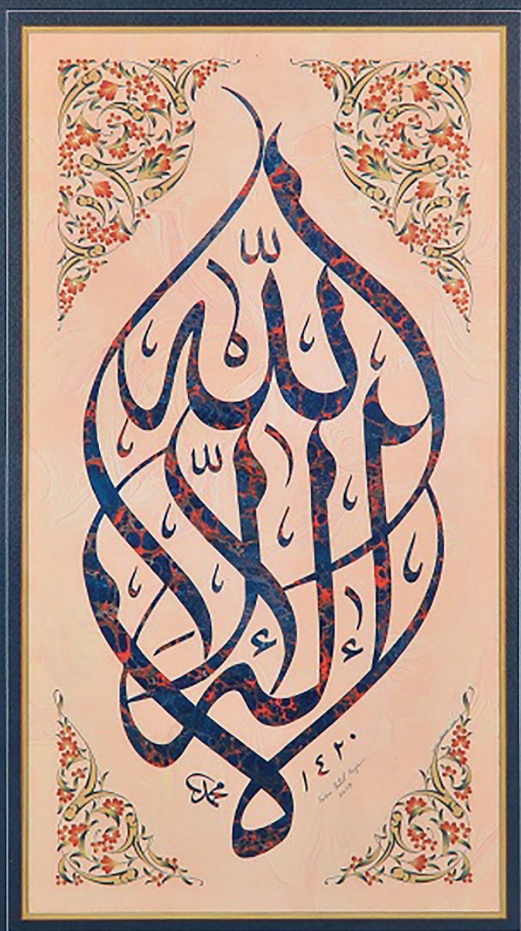 لا إله إلا الله
محمد
١٤٢٠